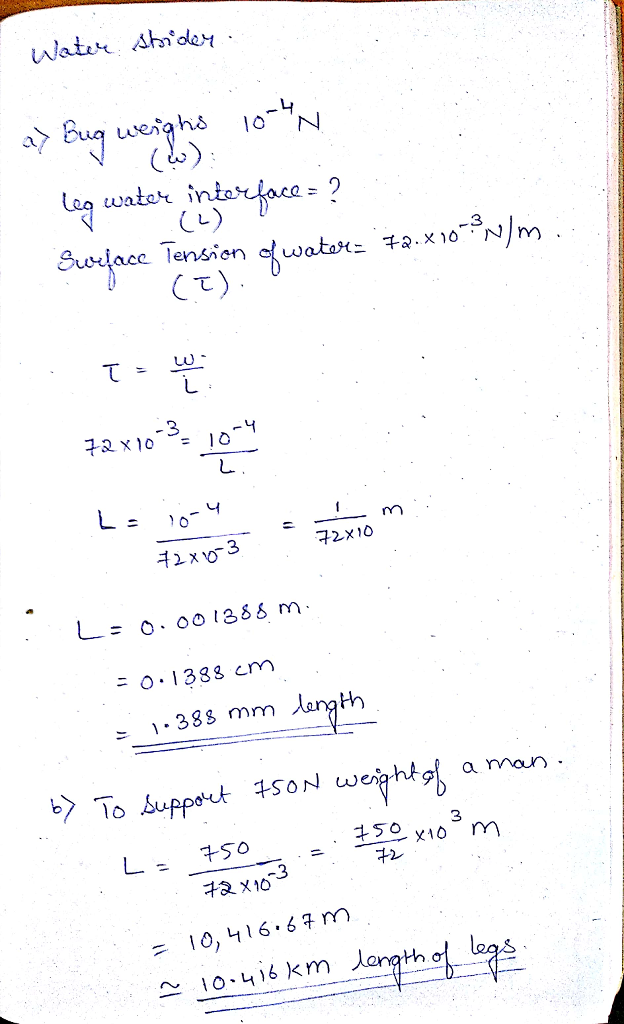 Water strider.
a) Bug weighs 10⁻⁴ N
(w).
leg water interface = ?
(L)
Surface Tension of water = 72.×10⁻³ N/m.
(τ).
τ = w/L
72×10⁻³ = 10⁻⁴/L.
L = 10⁻⁴/72×10⁻³ = 1/72×10 m
L = 0.001388 m.
= 0.1388 cm
= 1.388 mm length
b) To support 750N weight of a man.
L = 750/72×10⁻³ = 750/72 ×10³ m
= 10,416.67 m
≈ 10.416 km length of legs.